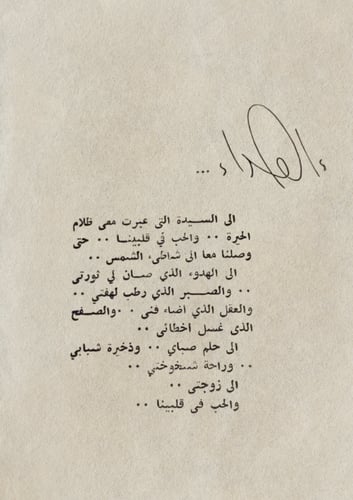 الاهداء ...
الى السيدة التى عبرت معى ظلام
الحيرة .. والحب فى قلبينا .. حتى
وصلنا معا الى شاطىء الشمس ..
الى الهدوء الذي صان لي ثورتى
.. والصبر الذي رطب لهفتي ..
والعقل الذي أضاء فنى .. والصفح
الذى غسل أخطائى ..
الى حلم صباي .. وذخيرة شبابي
.. وراحة شيخوختي ..
الى زوجتى ..
والحب فى قلبينا ..